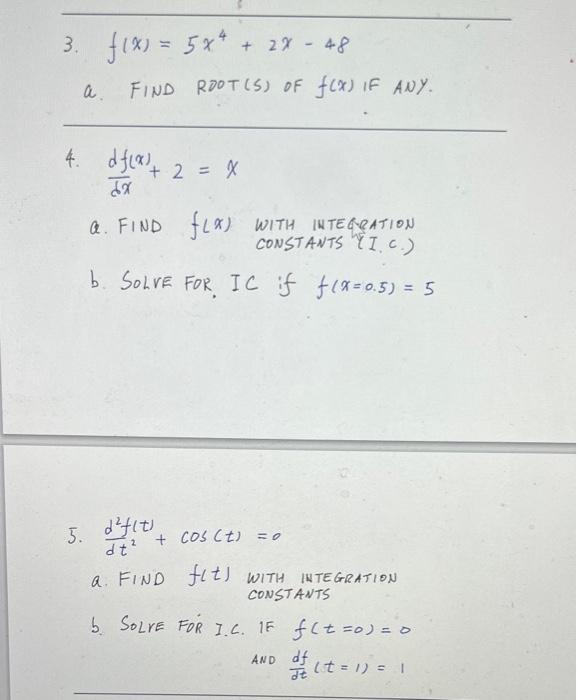 3. f(x) = 5x⁴ + 2x - 48
a. FIND ROOT(S) OF f(x) IF ANY.
4. df(x)/dx + 2 = x
a. FIND f(x) WITH INTEGRATION
CONSTANTS (I.C.)
b. SOLVE FOR IC if f(x=0.5) = 5
5. d²f(t)/dt² + cos(t) = 0
a. FIND f(t) WITH INTEGRATION
CONSTANTS
b. SOLVE FOR I.C. IF f(t=0) = 0
AND df/dt (t=1) = 1